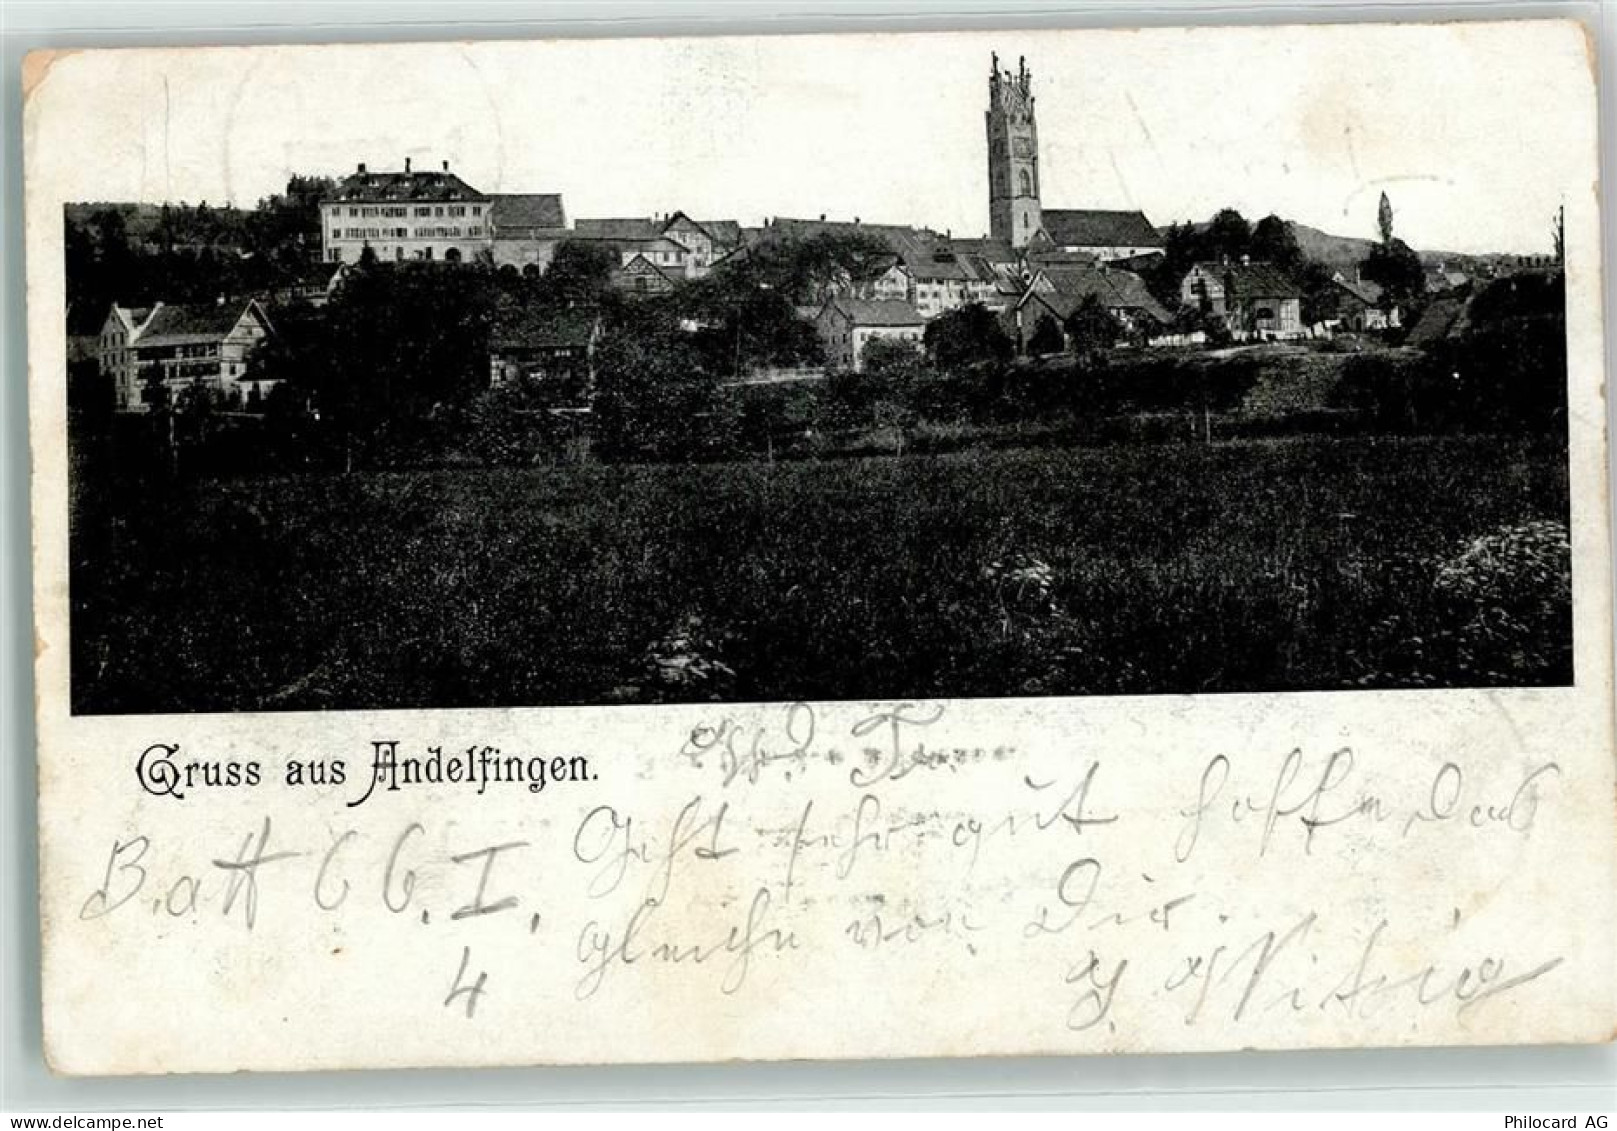 Gruss aus Andelfingen.
Batt 66. I.
4
Geht sehr gut hoffe das
gleiche von Dir.
delcampe.net
Philocard AG